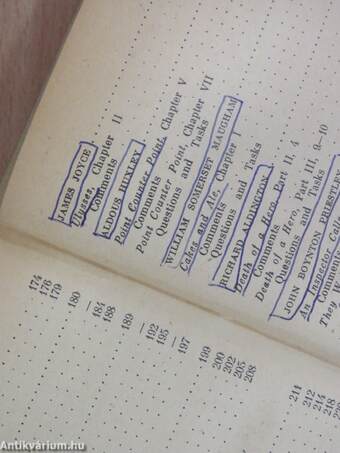 JAMES JOYCE
Ulysses, Chapter II
Comments
ALDOUS HUXLEY
Point Counter Point, Chapter V
Comments
Point Counter Point, Chapter VII
Questions and Tasks
WILLIAM SOMERSET MAUGHAM
Cakes and Ale, Chapter I
Comments
Questions and Tasks
RICHARD ALDINGTON
Death of a Hero, Part II, 4
Comments
Death of a Hero, Part III, 9—10
Questions and Tasks
JOHN BOYNTON PRIESTLEY
An Inspector
They
174
176
179
180
184
188
189
192
195
197
199
200
202
205
208
211
212
214
218
Antikvárium.hu